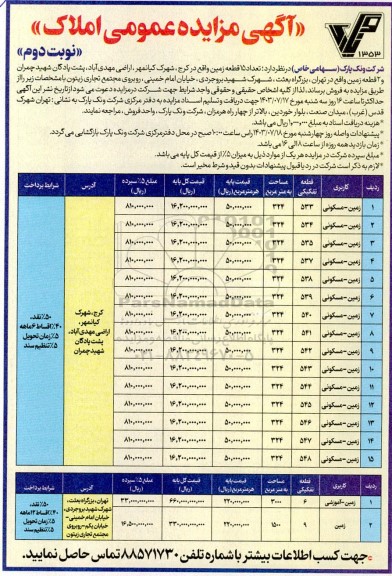 «آگهی مزایده عمومی املاک»
«نوبت دوم»
۱۳۵۳
شرکت ونک پارک (سهامی خاص) در نظر دارد: تعداد ۱۵ قطعه زمین واقع در کرج، شهرک کیانمهر، اراضی مهدی آباد، پشت پادگان شهید چمران
و ۲ قطعه زمین واقع در تهران، بزرگراه بعثت، شهرک شهید بروجردی، خیابان امام خمینی، روبروی مجتمع تجاری زیتون با مشخصات زیر را از
طریق مزایده به فروش برساند، لذا از کلیه اشخاص حقیقی و حقوقی واجد شرایط جهت شرکت در مزایده دعوت می شود از تاریخ نشر این آگهی
حداکثر تا ساعت ۱۶ روز سه شنبه مورخ ۱۴۰۳/۰۷/۱۷ جهت دریافت و تسلیم اسناد مزایده به دفتر مرکزی شرکت ونک پارک به نشانی: تهران شهرک
قدس (غرب)، میدان صنعت، بلوار خوردین، بالاتر از چهار راه هرمزان، شرکت ونک پارک، واحد فروش، مراجعه نمایند.
* هزینه دریافت اسناد به مبلغ ۱,۰۰۰,۰۰۰ ریال می باشد.
* پیشنهادات واصله روز چهارشنبه مورخ ۱۴۰۳/۰۷/۱۸ راس ساعت ۱۰:۰۰ صبح در محل دفتر مرکزی شرکت ونک پارک بازگشایی می گردد.
* زمان بازدید همه روزه از ساعت ۸ الی ۱۶ می باشد.
* مبلغ سپرده شرکت در مزایده هر یک از موارد ذیل به میزان ۵٪ از قیمت کل پایه می باشد.
* لازم به ذکر است شرکت در رد یا قبول پیشنهادات بدون قید و شرط مخیر است.
ردیف کاربری قطعه تفکیکی مساحت به متر مربع قیمت پایه هر متر مربع (ریال) قیمت کل پایه (ریال) مبلغ ۵٪ سپرده (ریال) آدرس شرایط پرداخت
۱ زمین-مسکونی ۵۳۳ ۳۲۴ ۵۰,۰۰۰,۰۰۰ ۱۶,۲۰۰,۰۰۰,۰۰۰ ۸۱۰,۰۰۰,۰۰۰
۲ زمین-مسکونی ۵۳۴ ۳۲۴ ۵۰,۰۰۰,۰۰۰ ۱۶,۲۰۰,۰۰۰,۰۰۰ ۸۱۰,۰۰۰,۰۰۰
۳ زمین-مسکونی ۵۳۵ ۳۲۴ ۵۰,۰۰۰,۰۰۰ ۱۶,۲۰۰,۰۰۰,۰۰۰ ۸۱۰,۰۰۰,۰۰۰
۴ زمین-مسکونی ۵۳۷ ۳۲۴ ۵۰,۰۰۰,۰۰۰ ۱۶,۲۰۰,۰۰۰,۰۰۰ ۸۱۰,۰۰۰,۰۰۰
۵ زمین-مسکونی ۵۳۸ ۳۲۴ ۵۰,۰۰۰,۰۰۰ ۱۶,۲۰۰,۰۰۰,۰۰۰ ۸۱۰,۰۰۰,۰۰۰
۶ زمین-مسکونی ۵۳۹ ۳۲۴ ۵۰,۰۰۰,۰۰۰ ۱۶,۲۰۰,۰۰۰,۰۰۰ ۸۱۰,۰۰۰,۰۰۰
۷ زمین-مسکونی ۵۴۰ ۳۲۴ ۵۰,۰۰۰,۰۰۰ ۱۶,۲۰۰,۰۰۰,۰۰۰ ۸۱۰,۰۰۰,۰۰۰
۸ زمین-مسکونی ۵۴۱ ۳۲۴ ۵۰,۰۰۰,۰۰۰ ۱۶,۲۰۰,۰۰۰,۰۰۰ ۸۱۰,۰۰۰,۰۰۰
۹ زمین-مسکونی ۵۴۲ ۳۲۴ ۵۰,۰۰۰,۰۰۰ ۱۶,۲۰۰,۰۰۰,۰۰۰ ۸۱۰,۰۰۰,۰۰۰
۱۰ زمین-مسکونی ۵۴۳ ۳۲۴ ۵۰,۰۰۰,۰۰۰ ۱۶,۲۰۰,۰۰۰,۰۰۰ ۸۱۰,۰۰۰,۰۰۰
۱۱ زمین-مسکونی ۵۴۴ ۳۲۴ ۵۰,۰۰۰,۰۰۰ ۱۶,۲۰۰,۰۰۰,۰۰۰ ۸۱۰,۰۰۰,۰۰۰
۱۲ زمین-مسکونی ۵۴۵ ۳۲۴ ۵۰,۰۰۰,۰۰۰ ۱۶,۲۰۰,۰۰۰,۰۰۰ ۸۱۰,۰۰۰,۰۰۰
۱۳ زمین-مسکونی ۵۴۶ ۳۲۴ ۵۰,۰۰۰,۰۰۰ ۱۶,۲۰۰,۰۰۰,۰۰۰ ۸۱۰,۰۰۰,۰۰۰
۱۴ زمین-مسکونی ۵۴۷ ۳۲۴ ۵۰,۰۰۰,۰۰۰ ۱۶,۲۰۰,۰۰۰,۰۰۰ ۸۱۰,۰۰۰,۰۰۰
۱۵ زمین-مسکونی ۵۴۸ ۳۲۴ ۵۰,۰۰۰,۰۰۰ ۱۶,۲۰۰,۰۰۰,۰۰۰ ۸۱۰,۰۰۰,۰۰۰
کرج، شهرک
کیانمهر،
اراضی مهدی آباد،
پشت پادگان
شهید چمران
۵۰٪ نقد،
۴۰٪ اقساط ۶ ماهه
۵٪ زمان تحویل
۵٪ تنظیم سند
ParsNamadData
ردیف کاربری قطعه تفکیکی مساحت به متر مربع قیمت پایه هر متر مربع (ریال) قیمت کل پایه (ریال) مبلغ ۵٪ سپرده (ریال) آدرس شرایط پرداخت
۱ زمین-آموزشی ۶ ۳۰۰۰ ۲۲۰,۰۰۰,۰۰۰ ۶۶۰,۰۰۰,۰۰۰,۰۰۰ ۳۳,۰۰۰,۰۰۰,۰۰۰
۲ زمین ۹ ۱۵۰۰ ۲۲۰,۰۰۰,۰۰۰ ۳۳۰,۰۰۰,۰۰۰,۰۰۰ ۱۶,۵۰۰,۰۰۰,۰۰۰
تهران، بزرگراه بعثت،
شهرک شهید بروجردی،
خیابان امام خمینی،
خیابان یکم-روبروی
مجتمع تجاری زیتون
۵۰٪ نقد،
۴۰٪ اقساط ۱۲ ماهه
۵٪ زمان تحویل
۵٪ تنظیم سند
جهت کسب اطلاعات بیشتر با شماره تلفن ۸۸۵۷۱۷۳۰ تماس حاصل نمایید.